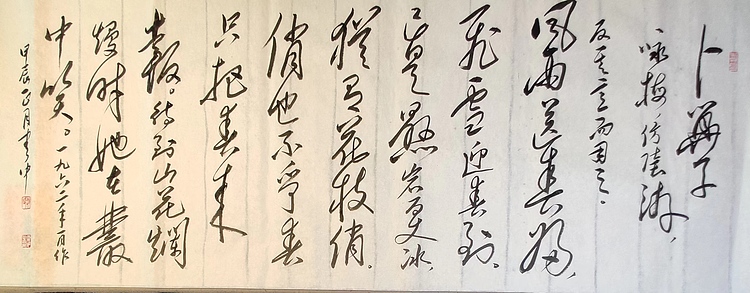 卜算子
咏梅,仿陆游,
反其意而用之。
风雨送春归,
飞雪迎春到。
已是悬岩百丈冰,
犹有花枝俏。
俏也不争春
只把春来
报。待到山花爛
熳时她在叢
中笑。一九六二年一月作
甲辰正月